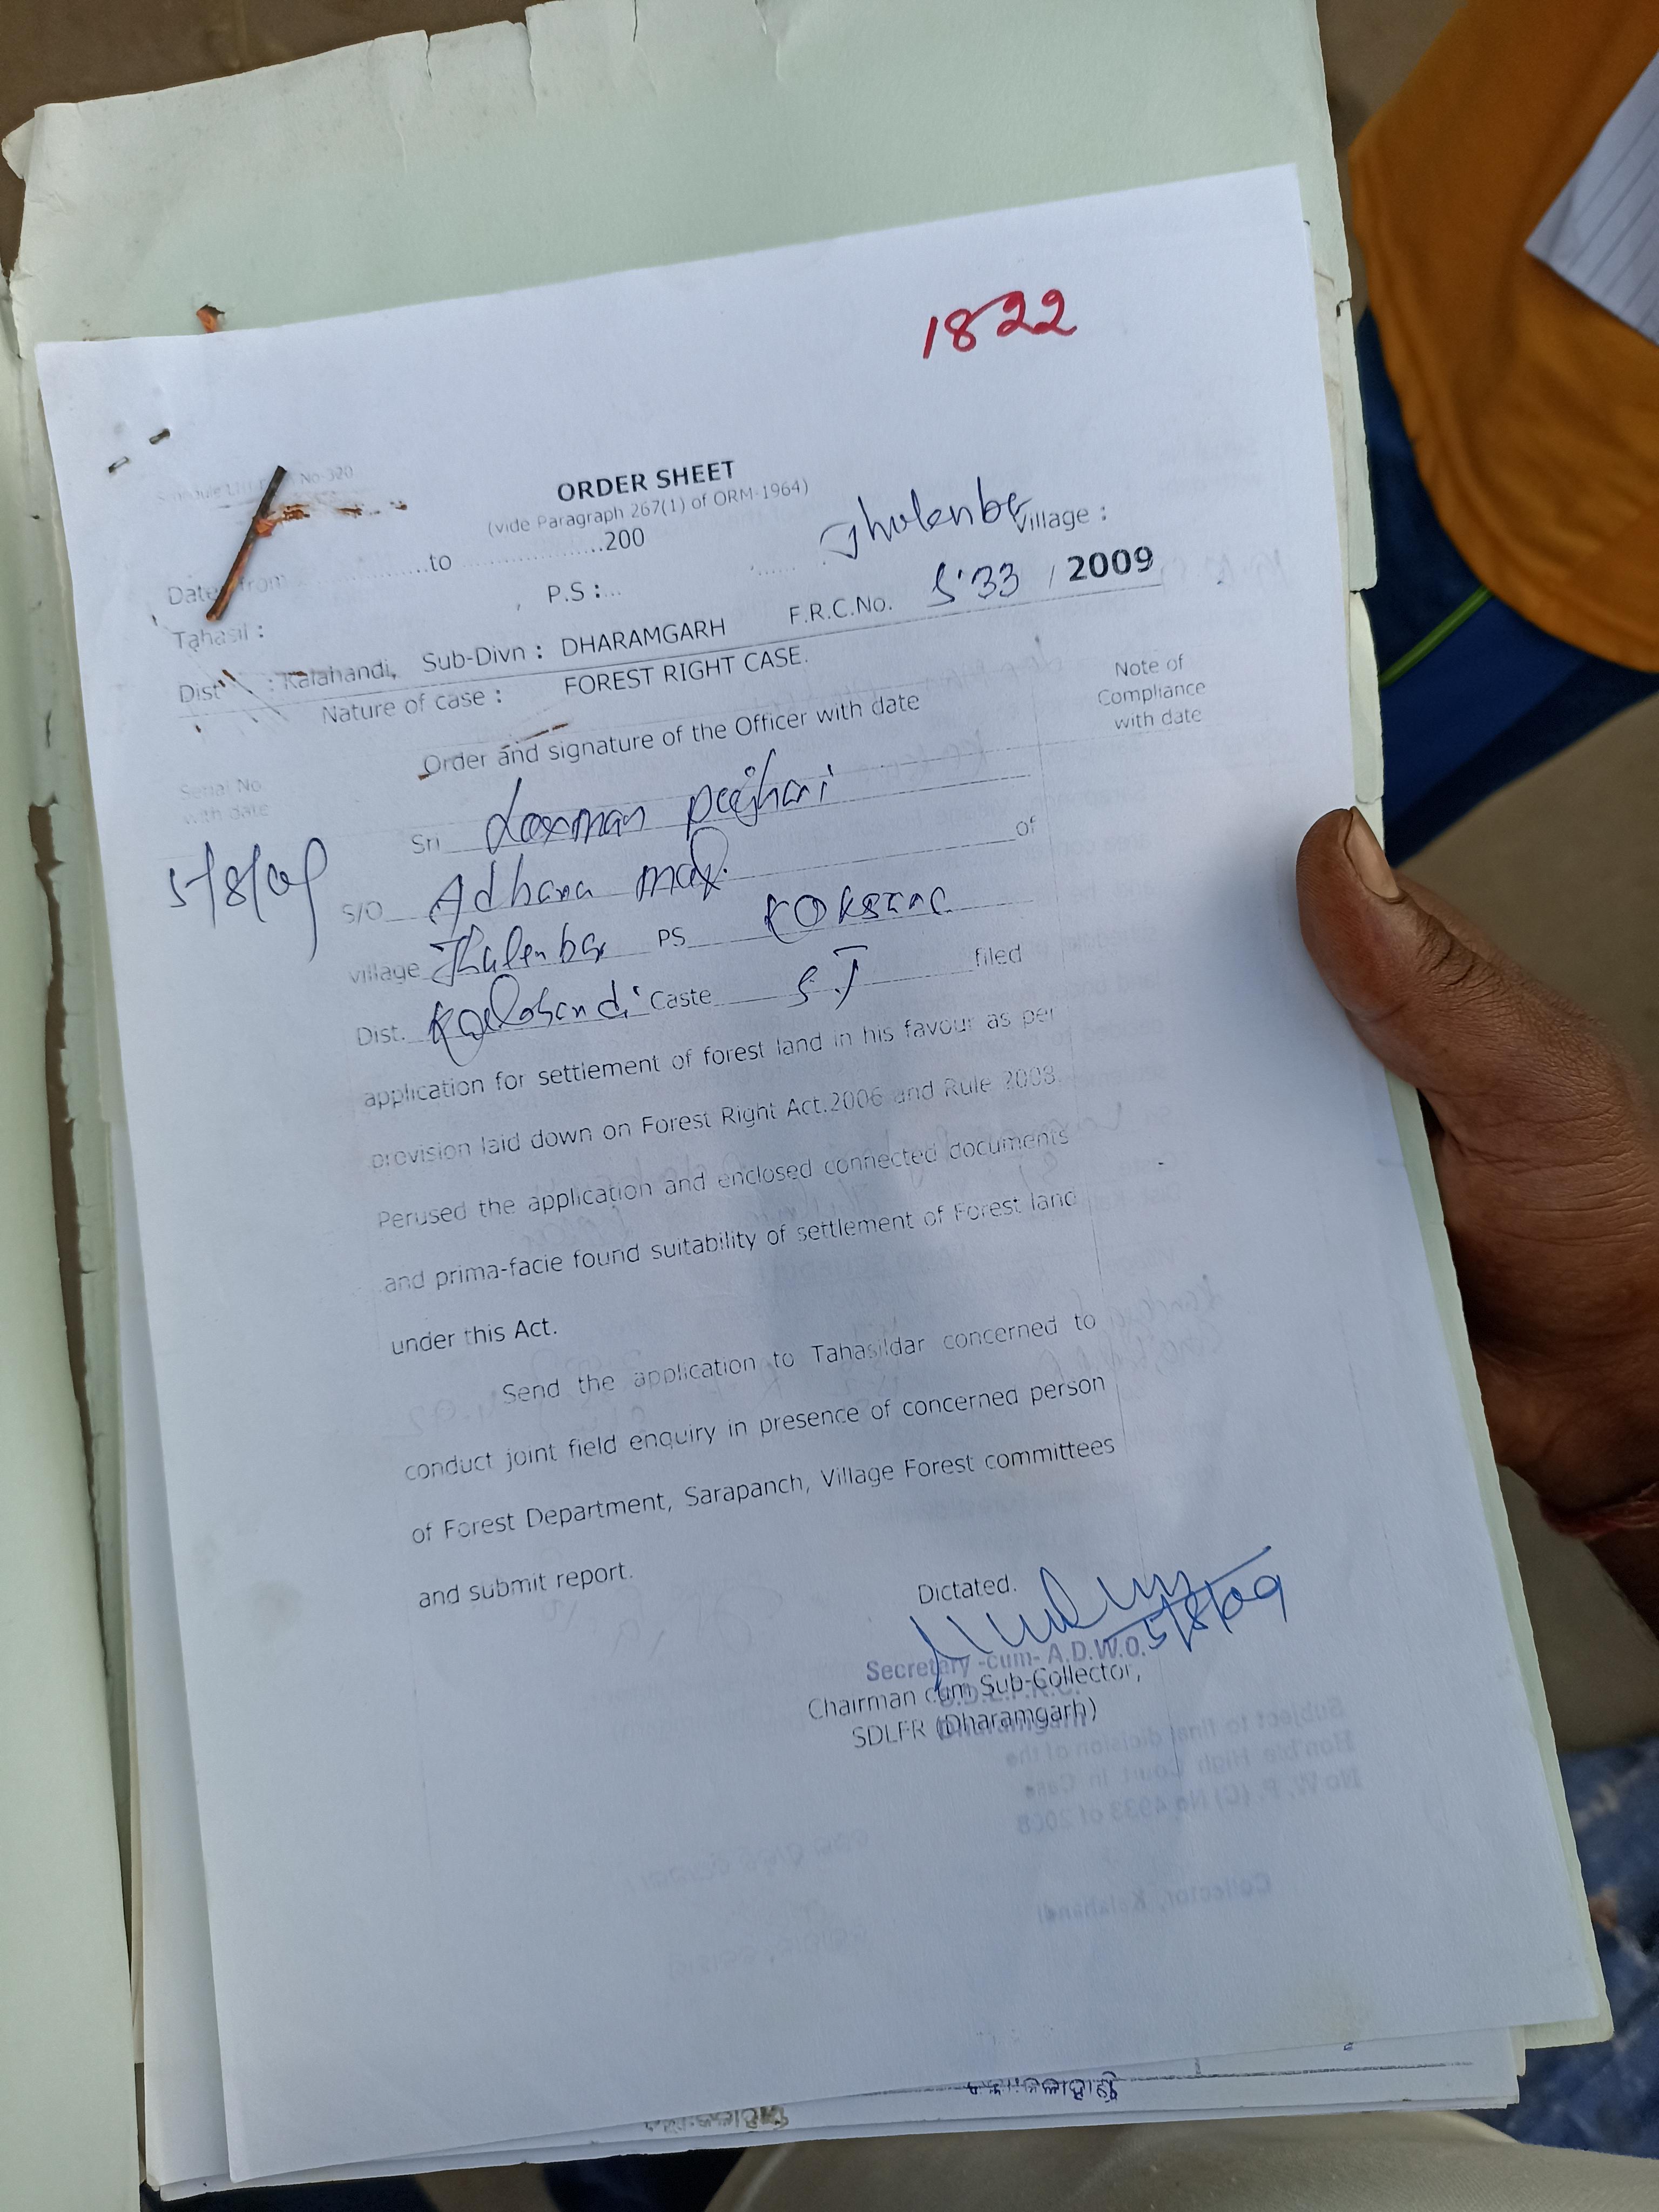 1822
No-320
ORDER SHEET
(vide Paragraph 267(1) of ORM-1964)
Date from ................to ..................200
Jholenbar Village :
Tahasil : , P.S :...
Dist : Kalahandi, Sub-Divn : DHARAMGARH F.R.C.No. 533 / 2009
Nature of case : FOREST RIGHT CASE.
Serial No with date
Order and signature of the Officer with date
Note of Compliance with date
5/8/09
Sri Laxman pujhari
S/O Adhana of
village PS Koksara
Dist. Kalahandi Caste S.T filed
application for settlement of forest land in his favour as per
provision laid down on Forest Right Act.2006 and Rule 2008.
Perused the application and enclosed connected documents
and prima-facie found suitability of settlement of Forest land
under this Act.
Send the application to Tahasildar concerned to
conduct joint field enquiry in presence of concerned person
of Forest Department, Sarapanch, Village Forest committees
and submit report.
Dictated.
5/8/09
Secretary -cum- A.D.W.O.
Chairman cum Sub-Collector,
S.D.L.F.R.C.
SDLFR (Dharamgarh)
Dharamgarh
Subject to final division of the
Hon'ble High Court in Case
No W. P. (C) No 4933 of 2008
Collector, Kalahandi